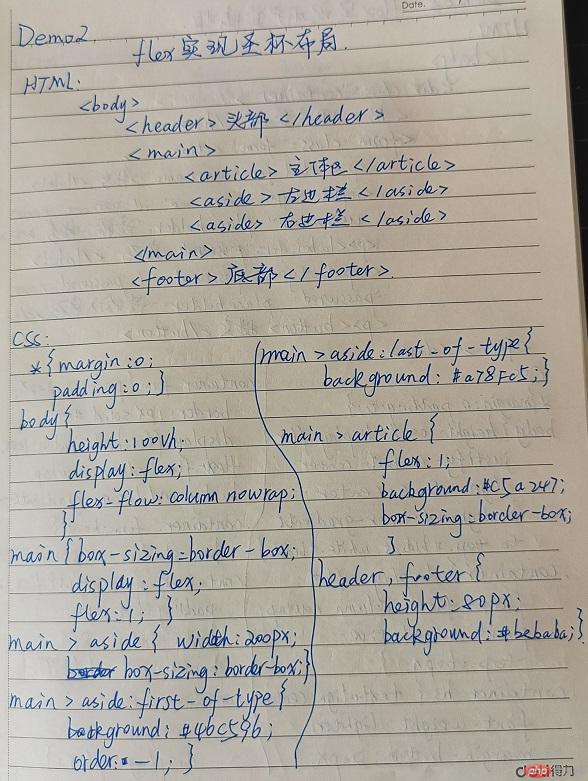 Date.
Demo2
flex实现圣杯布局.
HTML:
<body>
<header>头部</header>
<main>
<article>主体区</article>
<aside>左边栏</aside>
<aside>右边栏</aside>
</main>
<footer>底部</footer>.
CSS:
*{margin:0;
padding:0;}
body{
height:100Vh;
display:flex;
flex-flow:column nowrap;
}
main{box-sizing=border-box;
display:flex;
flex:1; }
main > aside { width:200px;
box-sizing:border-box;}
main > aside:first-of-type{
background: #4bc59b;
order: -1; }
main > aside:last-of-type{
background: #a78Fc5;}
main > article {
flex:1;
background:#c5a247;
box-sizing=border-box;
}
header, footer {
height:80px;
background:#bebaba;}
php
得力